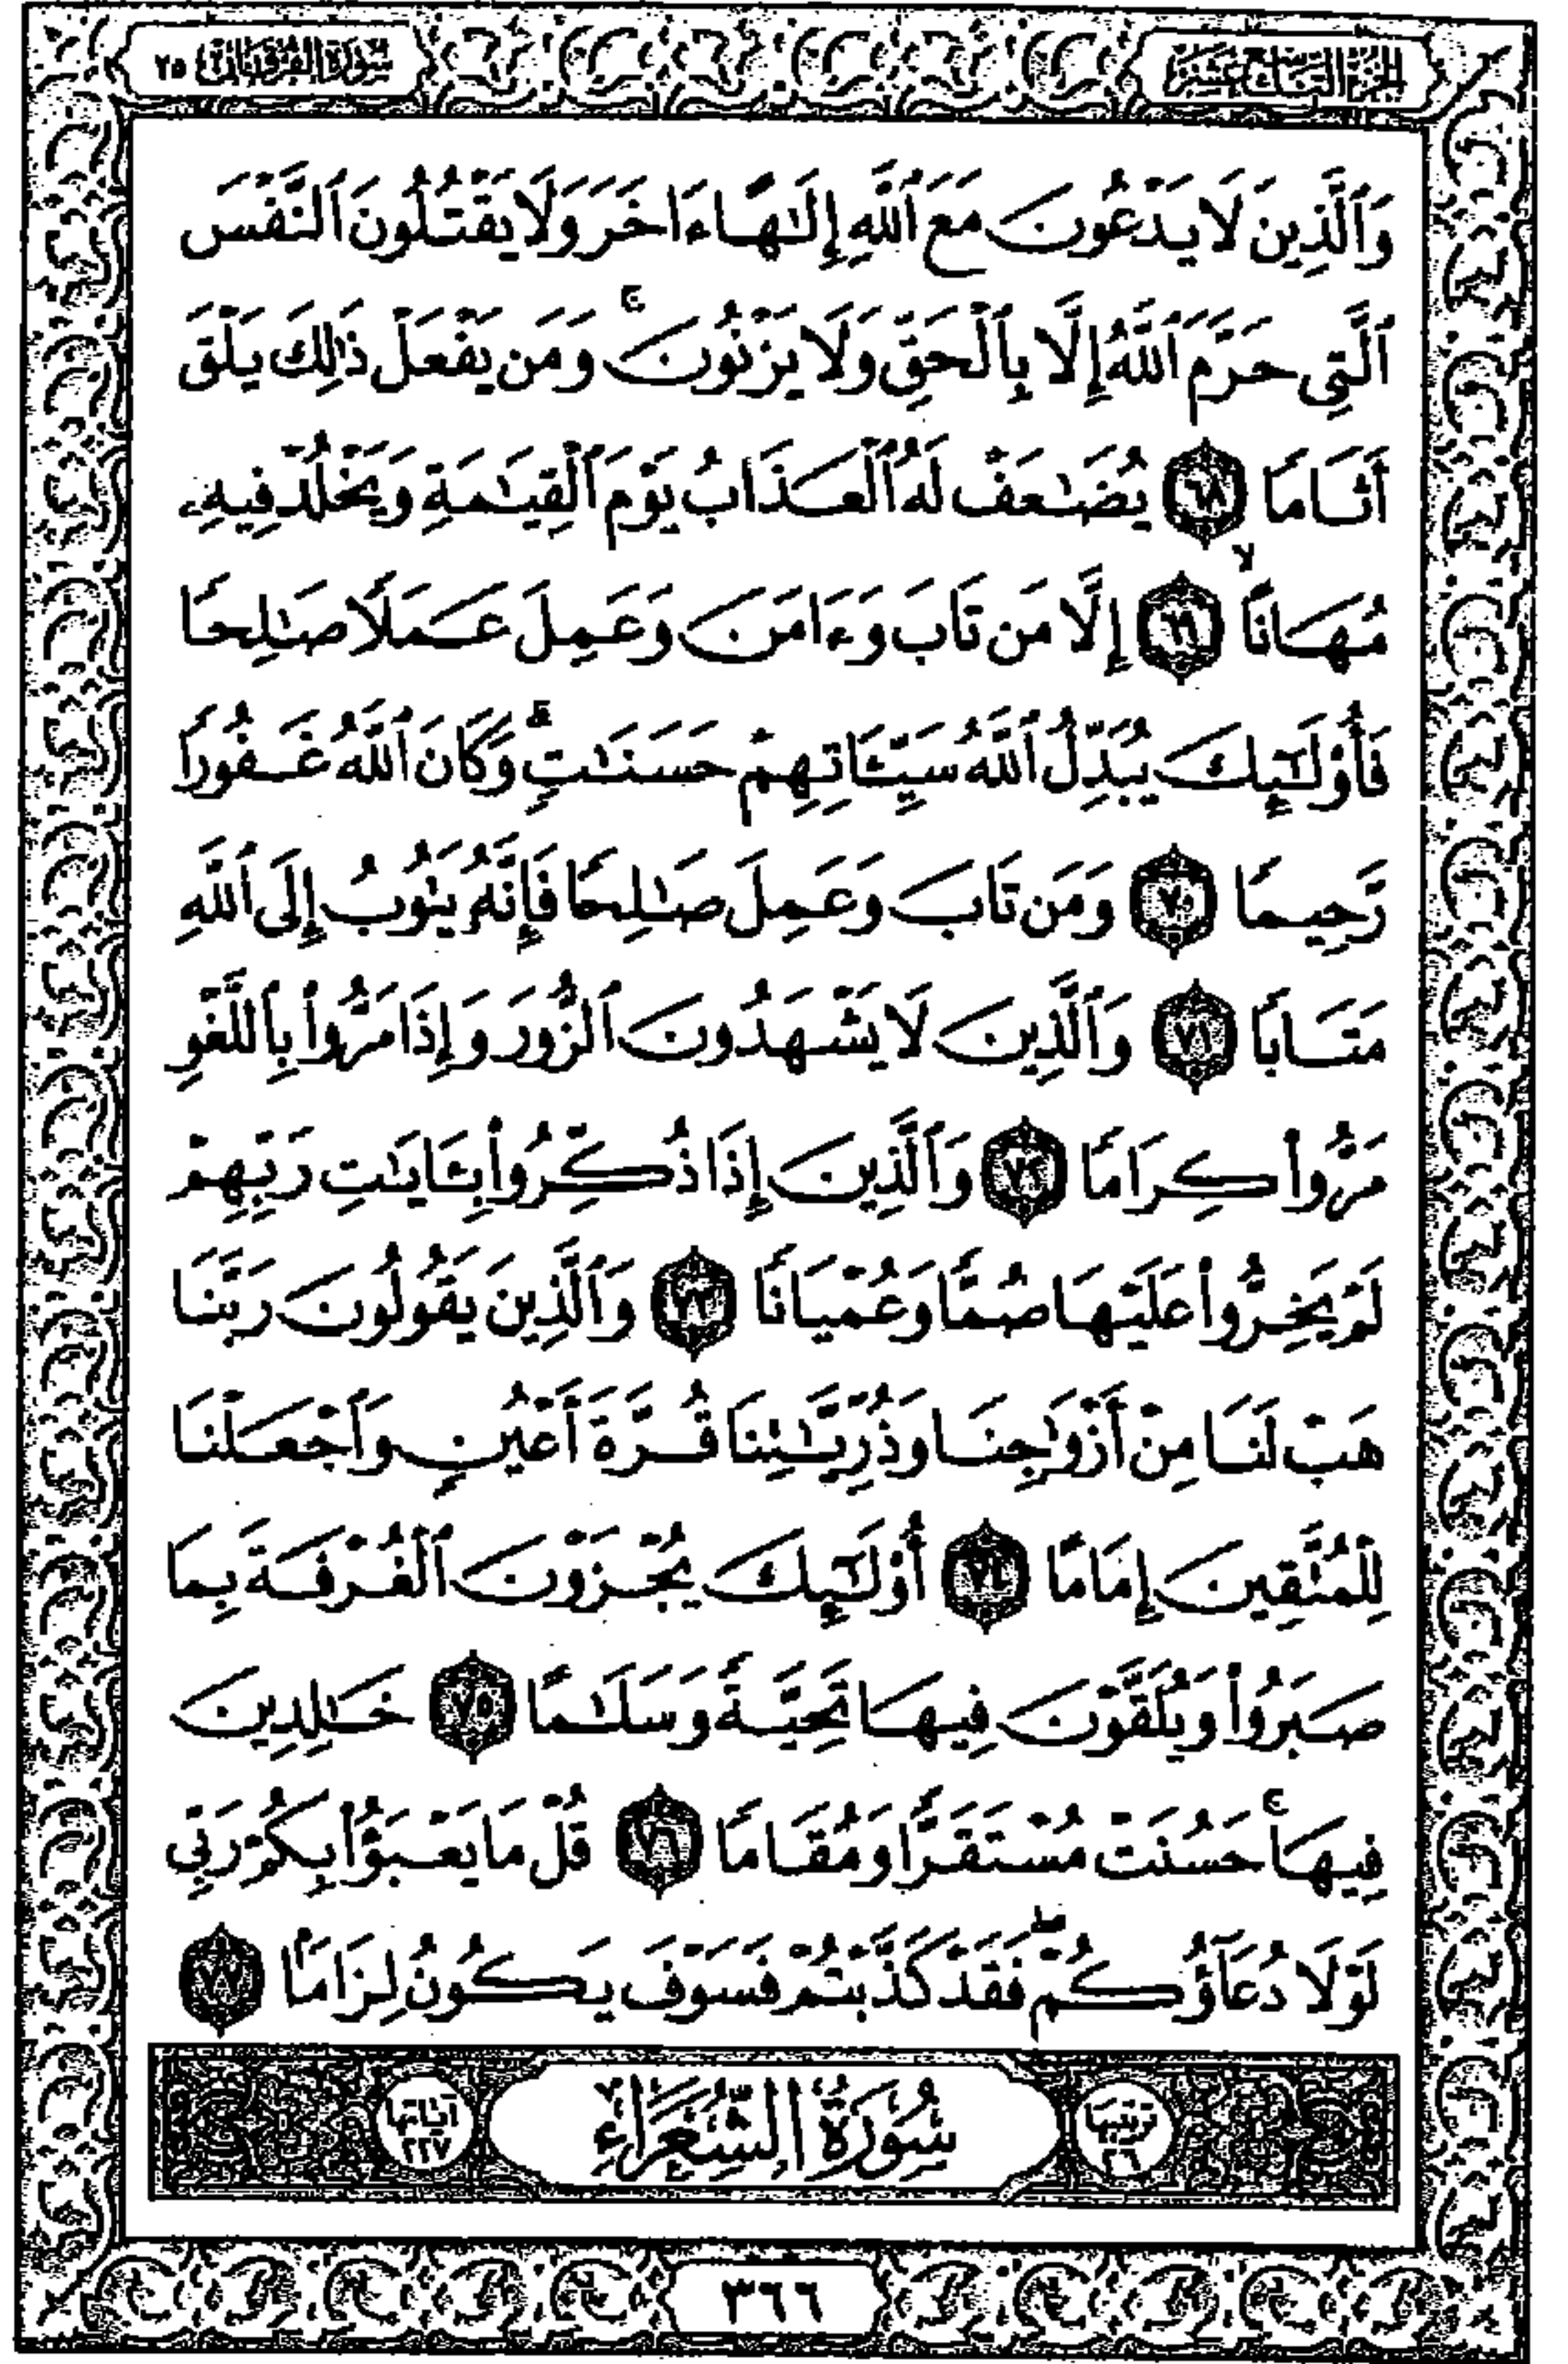 الجزء التاسع عشر
سورة الفرقان ٢٥
وَٱلَّذِينَ لَا يَدْعُونَ مَعَ ٱللَّهِ إِلَـٰهًا ءَاخَرَ وَلَا يَقْتُلُونَ ٱلنَّفْسَ
ٱلَّتِى حَرَّمَ ٱللَّهُ إِلَّا بِٱلْحَقِّ وَلَا يَزْنُونَ ۚ وَمَن يَفْعَلْ ذَٰلِكَ يَلْقَ
أَثَامًا ٦٨ يُضَـٰعَفْ لَهُ ٱلْعَذَابُ يَوْمَ ٱلْقِيَـٰمَةِ وَيَخْلُدْ فِيهِۦ
مُهَانًا ۙ ٦٩ إِلَّا مَن تَابَ وَءَامَنَ وَعَمِلَ عَمَلًا صَـٰلِحًا
فَأُو۟لَـٰٓئِكَ يُبَدِّلُ ٱللَّهُ سَيِّـَٔاتِهِمْ حَسَنَـٰتٍ ۗ وَكَانَ ٱللَّهُ غَفُورًا
رَّحِيمًا ٧٠ وَمَن تَابَ وَعَمِلَ صَـٰلِحًا فَإِنَّهُۥ يَتُوبُ إِلَى ٱللَّهِ
مَتَابًا ٧١ وَٱلَّذِينَ لَا يَشْهَدُونَ ٱلزُّورَ وَإِذَا مَرُّوا۟ بِٱللَّغْوِ
مَرُّوا۟ كِرَامًا ٧٢ وَٱلَّذِينَ إِذَا ذُكِّرُوا۟ بِـَٔايَـٰتِ رَبِّهِمْ
لَمْ يَخِرُّوا۟ عَلَيْهَا صُمًّا وَعُمْيَانًا ٧٣ وَٱلَّذِينَ يَقُولُونَ رَبَّنَا
هَبْ لَنَا مِنْ أَزْوَٰجِنَا وَذُرِّيَّـٰتِنَا قُرَّةَ أَعْيُنٍ وَٱجْعَلْنَا
لِلْمُتَّقِينَ إِمَامًا ٧٤ أُو۟لَـٰٓئِكَ يُجْزَوْنَ ٱلْغُرْفَةَ بِمَا
صَبَرُوا۟ وَيُلَقَّوْنَ فِيهَا تَحِيَّةً وَسَلَـٰمًا ٧٥ خَـٰلِدِينَ
فِيهَا ۚ حَسُنَتْ مُسْتَقَرًّا وَمُقَامًا ٧٦ قُلْ مَا يَعْبَؤُا۟ بِكُمْ رَبِّى
لَوْلَا دُعَآؤُكُمْ ۖ فَقَدْ كَذَّبْتُمْ فَسَوْفَ يَكُونُ لِزَامًۢا ٧٧
ترتيبها ٢٦
سُورَةُ الشُّعَرَاءِ
آياتها ٢٢٧
٣٦٦